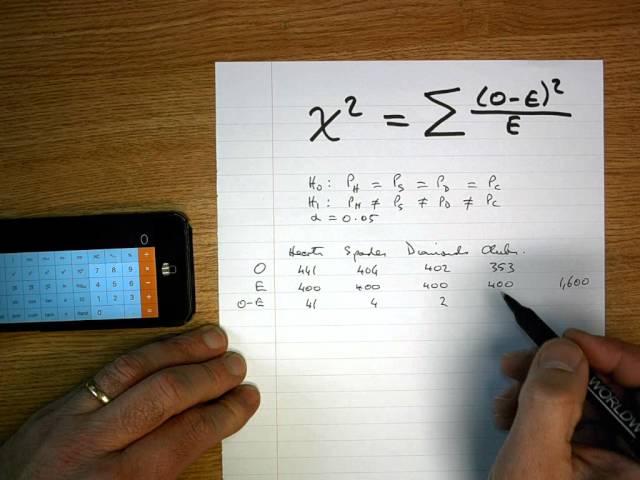 χ² = Σ (O-E)² / E
H₀: P_H = P_S = P_D = P_C
H₁: P_H ≠ P_S ≠ P_D ≠ P_C
α = 0.05
Hearts Spades Diamonds Clubs.
O 441 404 402 353
E 400 400 400 400 1,600
O-E 41 4 2
0
7 8 9
4 5 6
1 2 3
0
WORLDW